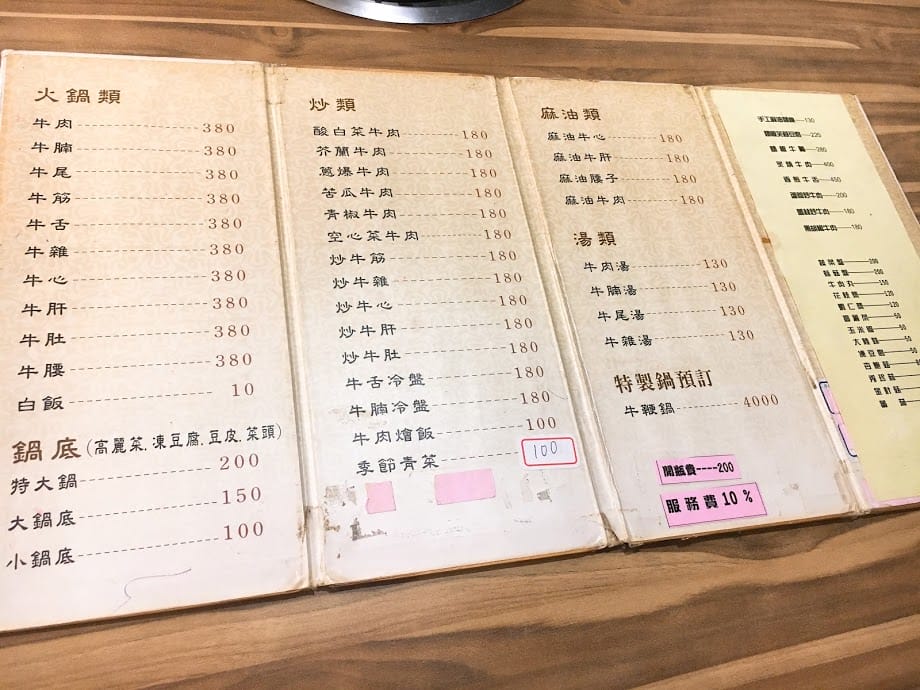 火鍋類
牛肉 380
牛腩 380
牛尾 380
牛筋 380
牛舌 380
牛雜 380
牛心 380
牛肝 380
牛肚 380
牛腰 380
白飯 10
鍋底(高麗菜.凍豆腐.豆皮.菜頭)
特大鍋 200
大鍋底 150
小鍋底 100
炒類
酸白菜牛肉 180
芥蘭牛肉 180
蔥爆牛肉 180
苦瓜牛肉 180
青椒牛肉 180
空心菜牛肉 180
炒牛筋 180
炒牛雜 180
炒牛心 180
炒牛肝 180
炒牛肚 180
牛舌冷盤 180
牛腩冷盤 180
牛肉燴飯 100
季節青菜 100
麻油類
麻油牛心 180
麻油牛肝 180
麻油腰子 180
麻油牛肉 180
湯類
牛肉湯 130
牛腩湯 130
牛尾湯 130
牛雜湯 130
特製鍋預訂
牛鞭鍋 4000
開瓶費----200
服務費10%
手工麻油麵線 130
220
280
400
450
200
180
黑胡椒牛肉 180
200
200
牛肉丸 150
花枝 120
蝦仁 120
50
玉米 50
50
凍豆腐 50